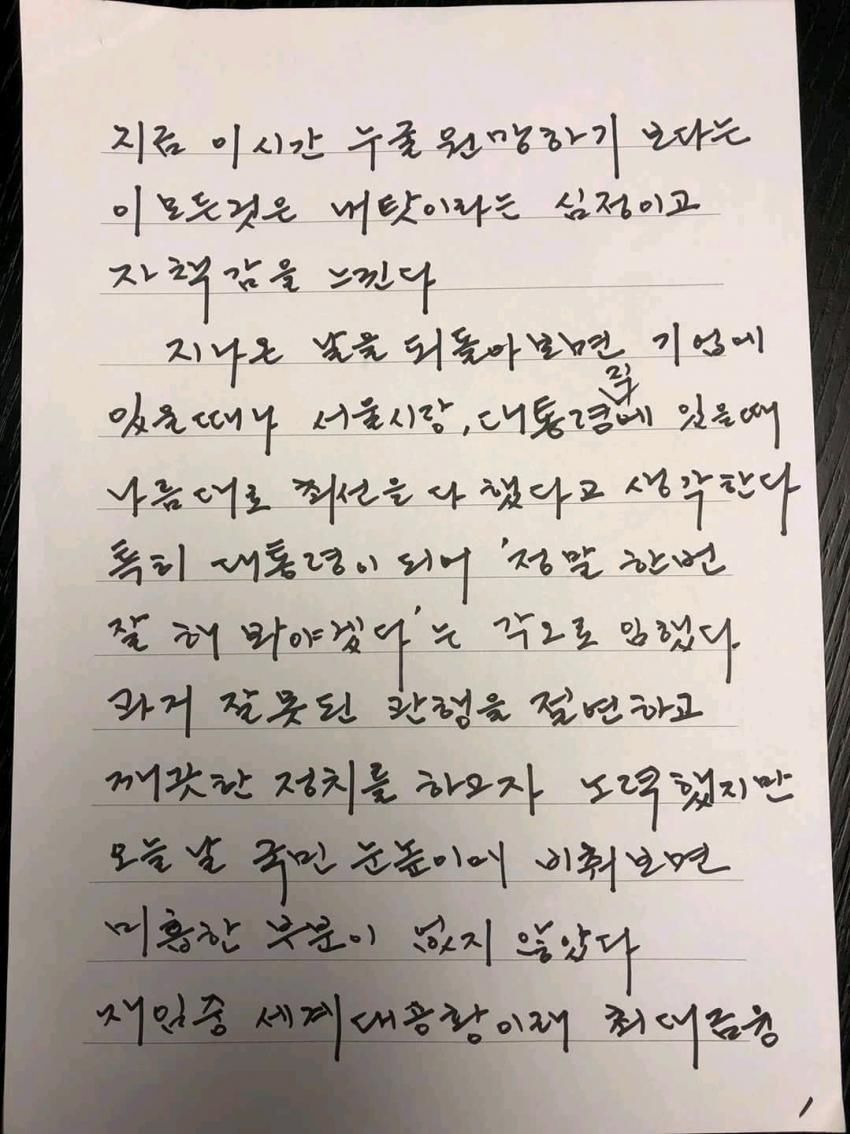 지금 이 시간 누굴 원망하기 보다는
이 모든것은 내 탓이라는 심정이고
자책감을 느낀다
지나온 날을 되돌아보면 기업에
있을때나 서울시장, 대통령직에 있을때
나름대로 최선을 다 했다고 생각한다
특히 대통령이 되어 '정말 한번
잘 해 봐야겠다'는 각오로 임했다
과거 잘못된 관행을 절연하고
깨끗한 정치를 하고자 노력했지만
오늘날 국민 눈높이에 비춰보면
미흡한 부분이 없지 않았다
재임중 세계대공황이래 최대금융
1